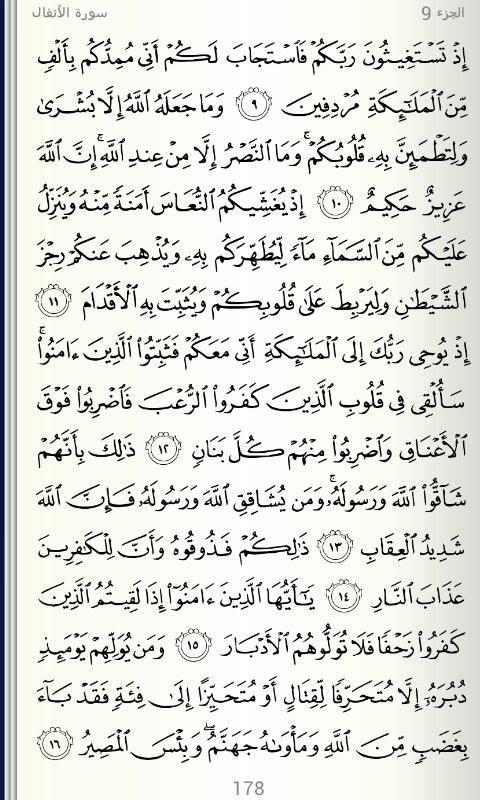 الجزء 9 سورة الأنفال
إِذْ تَسْتَغِيثُونَ رَبَّكُمْ فَاسْتَجَابَ لَكُمْ أَنِّي مُمِدُّكُم بِأَلْفٍ
مِّنَ الْمَلَـٰٓئِكَةِ مُرْدِفِينَ ٩ وَمَا جَعَلَهُ اللَّهُ إِلَّا بُشْرَىٰ
وَلِتَطْمَئِنَّ بِهِۦ قُلُوبُكُمْ ۚ وَمَا النَّصْرُ إِلَّا مِنْ عِندِ اللَّهِ ۚ إِنَّ اللَّهَ
عَزِيزٌ حَكِيمٌ ١٠ إِذْ يُغَشِّيكُمُ النُّعَاسَ أَمَنَةً مِّنْهُ وَيُنَزِّلُ
عَلَيْكُم مِّنَ السَّمَآءِ مَآءً لِّيُطَهِّرَكُم بِهِۦ وَيُذْهِبَ عَنكُمْ رِجْزَ
الشَّيْطَـٰنِ وَلِيَرْبِطَ عَلَىٰ قُلُوبِكُمْ وَيُثَبِّتَ بِهِ الْأَقْدَامَ ١١
إِذْ يُوحِى رَبُّكَ إِلَى الْمَلَـٰٓئِكَةِ أَنِّى مَعَكُمْ فَثَبِّتُوا۟ الَّذِينَ ءَامَنُوا۟ ۚ
سَأُلْقِى فِى قُلُوبِ الَّذِينَ كَفَرُوا۟ الرُّعْبَ فَاضْرِبُوا۟ فَوْقَ
الْأَعْنَاقِ وَاضْرِبُوا۟ مِنْهُمْ كُلَّ بَنَانٍ ١٢ ذَٰلِكَ بِأَنَّهُمْ
شَآقُّوا۟ اللَّهَ وَرَسُولَهُۥ ۚ وَمَن يُشَاقِقِ اللَّهَ وَرَسُولَهُۥ فَإِنَّ اللَّهَ
شَدِيدُ الْعِقَابِ ١٣ ذَٰلِكُمْ فَذُوقُوهُ وَأَنَّ لِلْكَـٰفِرِينَ
عَذَابَ النَّارِ ١٤ يَـٰٓأَيُّهَا الَّذِينَ ءَامَنُوٓا۟ إِذَا لَقِيتُمُ الَّذِينَ
كَفَرُوا۟ زَحْفًا فَلَا تُوَلُّوهُمُ الْأَدْبَارَ ١٥ وَمَن يُوَلِّهِمْ يَوْمَئِذٍ
دُبُرَهُۥٓ إِلَّا مُتَحَرِّفًا لِّقِتَالٍ أَوْ مُتَحَيِّزًا إِلَىٰ فِئَةٍ فَقَدْ بَآءَ
بِغَضَبٍ مِّنَ اللَّهِ وَمَأْوَىٰهُ جَهَنَّمُ ۖ وَبِئْسَ الْمَصِيرُ ١٦
178